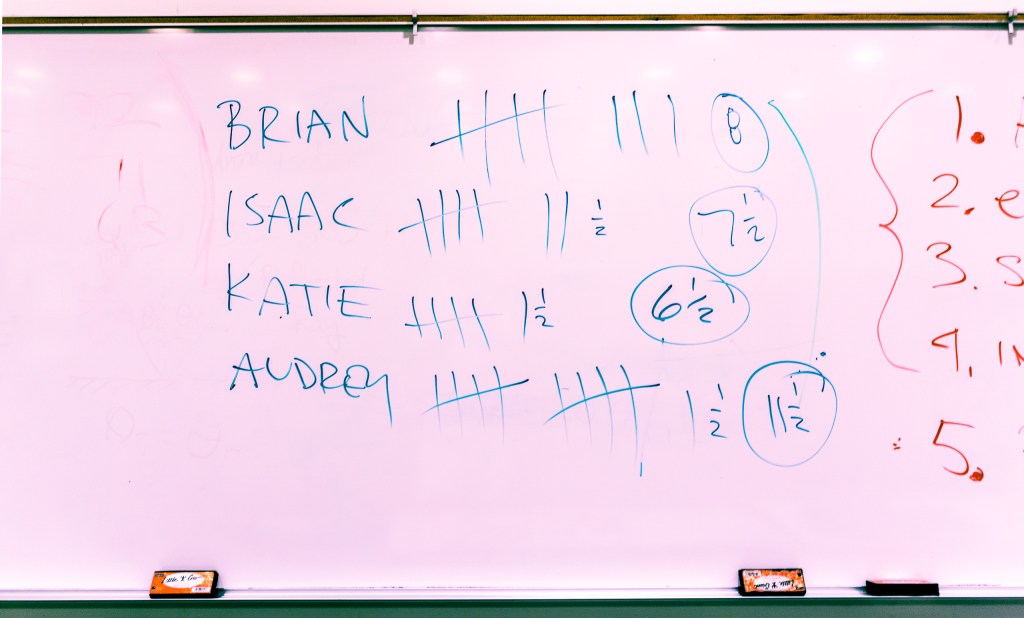 BRIAN 𝍸 ||| 8
ISAAC 𝍸 || 1/2 7 1/2
KATIE 𝍸 | 1/2 6 1/2
AUDREY 𝍸 𝍸 | 1/2 11 1/2
1.
2. e
3. S
4. IN
5.